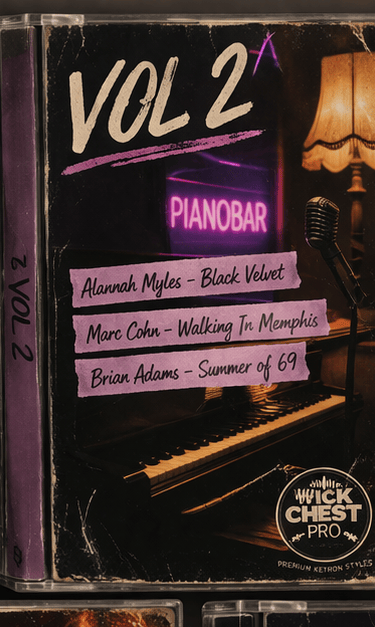 VOL 2
PIANOBAR
Alannah Myles - Black Velvet
Marc Cohn - Walking In Memphis
Brian Adams - Summer of 69
VOL 2
CHEST
PRO
PREMIUM KETRON STYLES